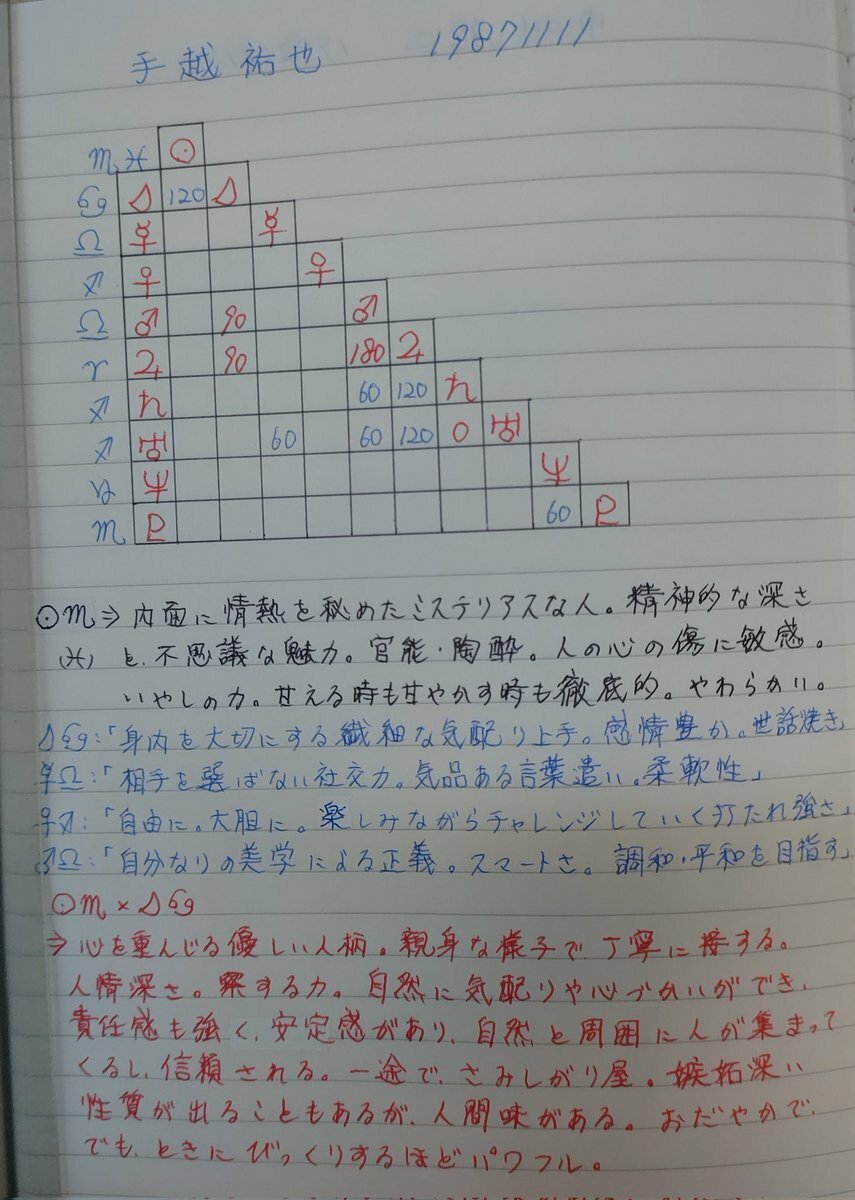 手越祐也 19871111
♏♓ ☉
♋ ☽ 120 ☽
♎ ☿ ☿
♐ ♀ ♀
♎ ♂ 90 ♂
♈ ♃ 90 180 ♃
♐ ♄ 60 120 ♄
♐ ♅ 60 60 120 0 ♅
♑ ♆ ♆
♏ ♇ 60 ♇
☉♏⇒内面に情熱を秘めたミステリアスな人。精神的な深さ
(♓) と、不思議な魅力。官能・陶酔。人の心の傷に敏感。
いやしの力。甘える時も甘やかす時も徹底的。やわらかい。
☽♋:「身内を大切にする繊細な気配り上手。感情豊か。世話焼き」
☿♎:「相手を選ばない社交力。気品ある言葉遣い。柔軟性」
♀♐:「自由に。大胆に。楽しみながらチャレンジしていく打たれ強さ」
♂♎:「自分なりの美学による正義。スマートさ。調和・平和を目指す」
☉♏×☽♋
⇒心を重んじる優しい人柄。親身な様子で丁寧に接する。
人情深さ。察する力。自然に気配りや心づかいができ、
責任感も強く、安定感があり、自然と周囲に人が集まって
くるし、信頼される。一途で、さみしがり屋。嫉妬深い
性質が出ることもあるが、人間味がある。おだやかで、
でも、ときにびっくりするほどパワフル。